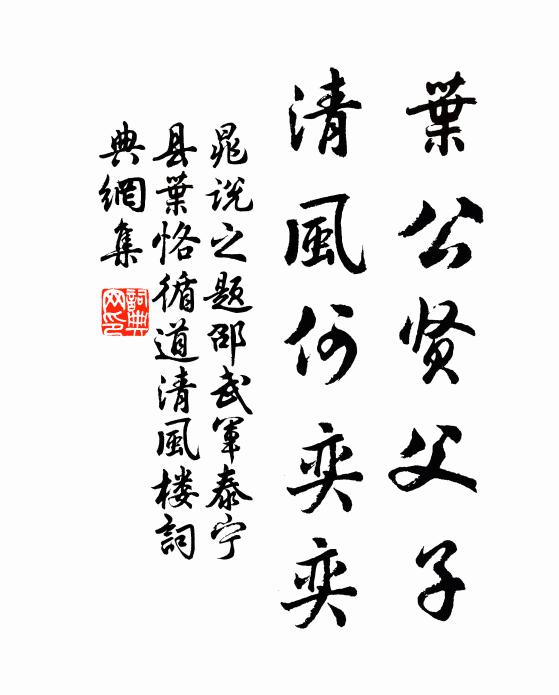 葉公贤父子
清風何奕奕
晁说之题邵武軍泰宁
县葉恪循道清風楼詞
典網集
詞典网印